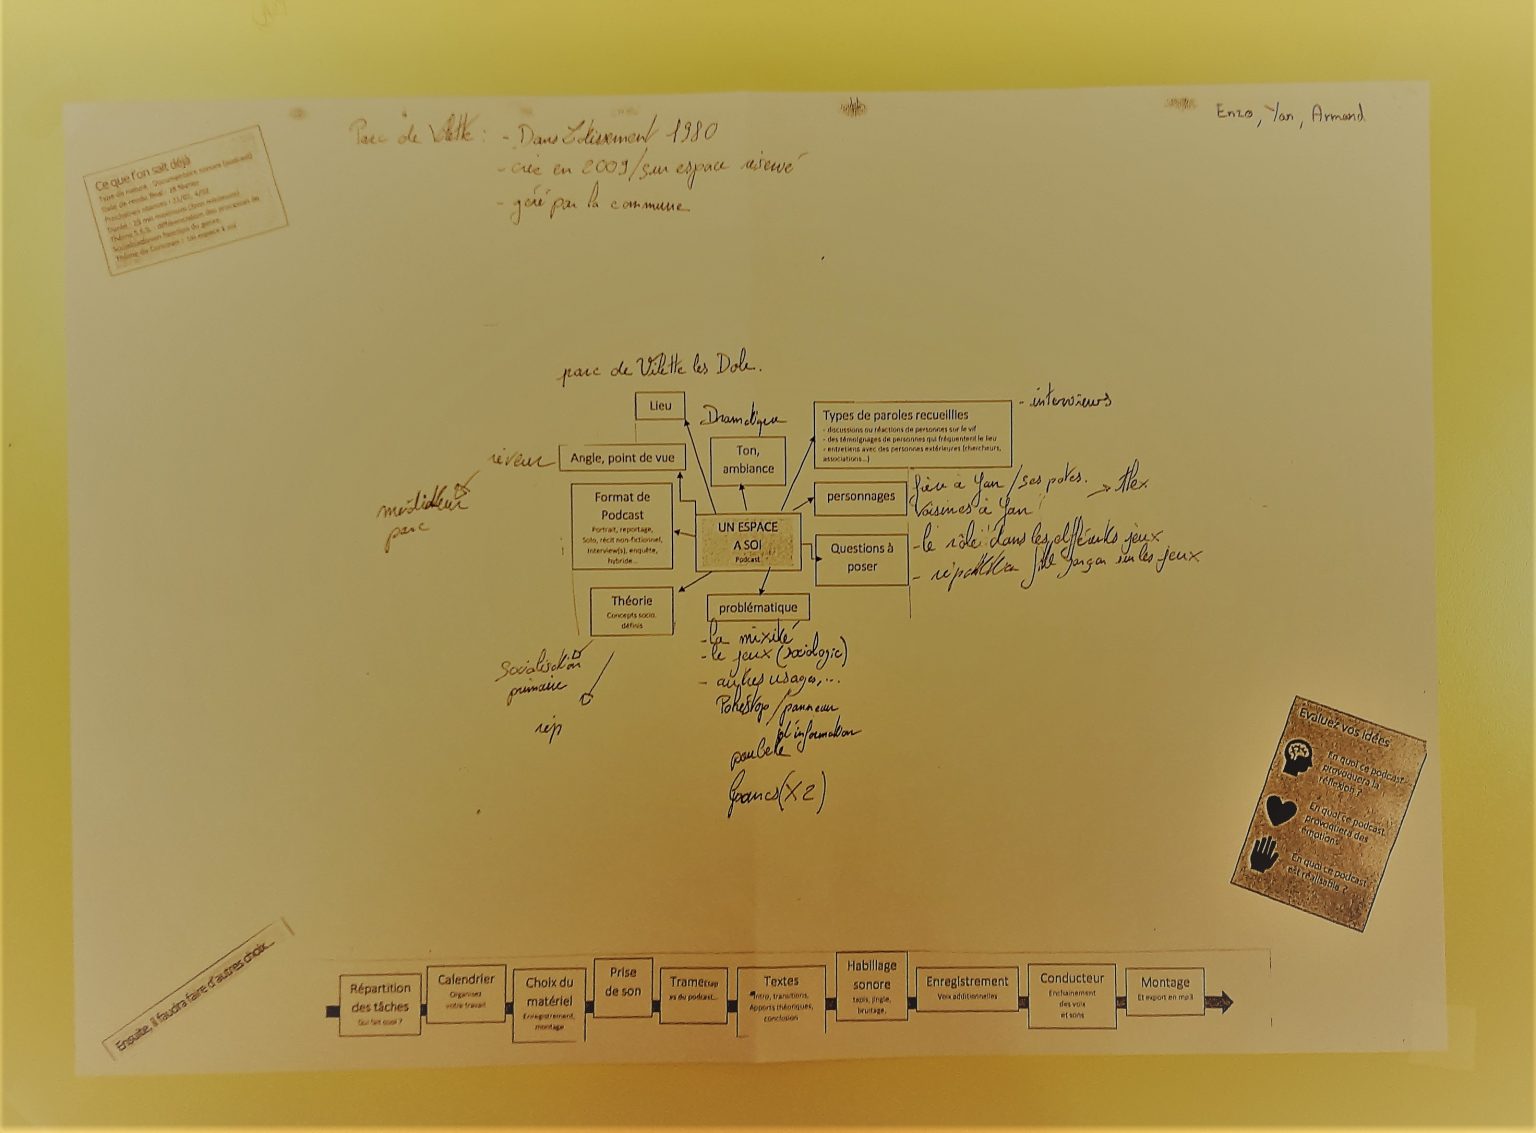 Enzo, Yan, Armand
Parc de Vilette : - Dans Lotissement 1980
- crée en 2009/sur espace réservé
- géré par la commune
Ce que l'on sait déjà
Type de nature : Documentaire sonore (podcast)
Date de rendu final : 28 février
Thème S.E.S. : différenciation des processus de
Socialisation en fonction du genre
Thème du Concours : Un espace à soi
parc de Vilette les Dole.
Lieu
Dramatique
Ton,
ambiance
Types de paroles recueillies
- discussions ou réactions de personnes sur le vif
- des témoignages de personnes qui fréquentent le lieu
- entretiens avec des personnes extérieures (chercheurs,
associations...)
- interviews
rêveur
Angle, point de vue
parc
Format de
Podcast
Portrait, reportage,
Solo, récit non-fictionnel,
Interview(s), enquête,
hybride...
UN ESPACE
A SOI
Podcast
personnages
à Yan / ses potes.
Voisines à Yan
Questions à
poser
- le rôle dans les différents jeux
- répartition garçon sur les jeux
Théorie
Concepts socio.
définis
Socialisation
primaire
rép
problématique
- la mixité
- le jeux (sociologie)
- autres usages,...
Pokéstop / panneau
d'information
poubelle
bancs (X2)
Evaluez vos idées
En quoi ce podcast
provoquera la
réflexion ?
En quoi ce podcast
provoquera des
émotions
En quoi ce podcast
est réalisable ?
Ensuite, il faudra faire d'autres choix...
Répartition
des tâches
Qui fait quoi ?
Calendrier
Organisez
votre travail
Choix du
matériel
Enregistrement,
montage
Prise
de son
Trame
es du podcast...
Textes
Intro, transitions,
Apports théoriques,
conclusion
Habillage
sonore
tapis, jingle,
bruitage,
Enregistrement
Voix additionnelles
Conducteur
Enchainement
des voix
et sons
Montage
Et export en mp3